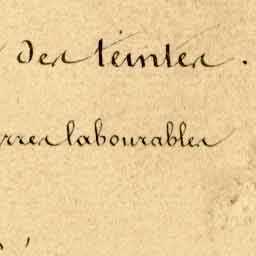 des teintes.
rres labourables